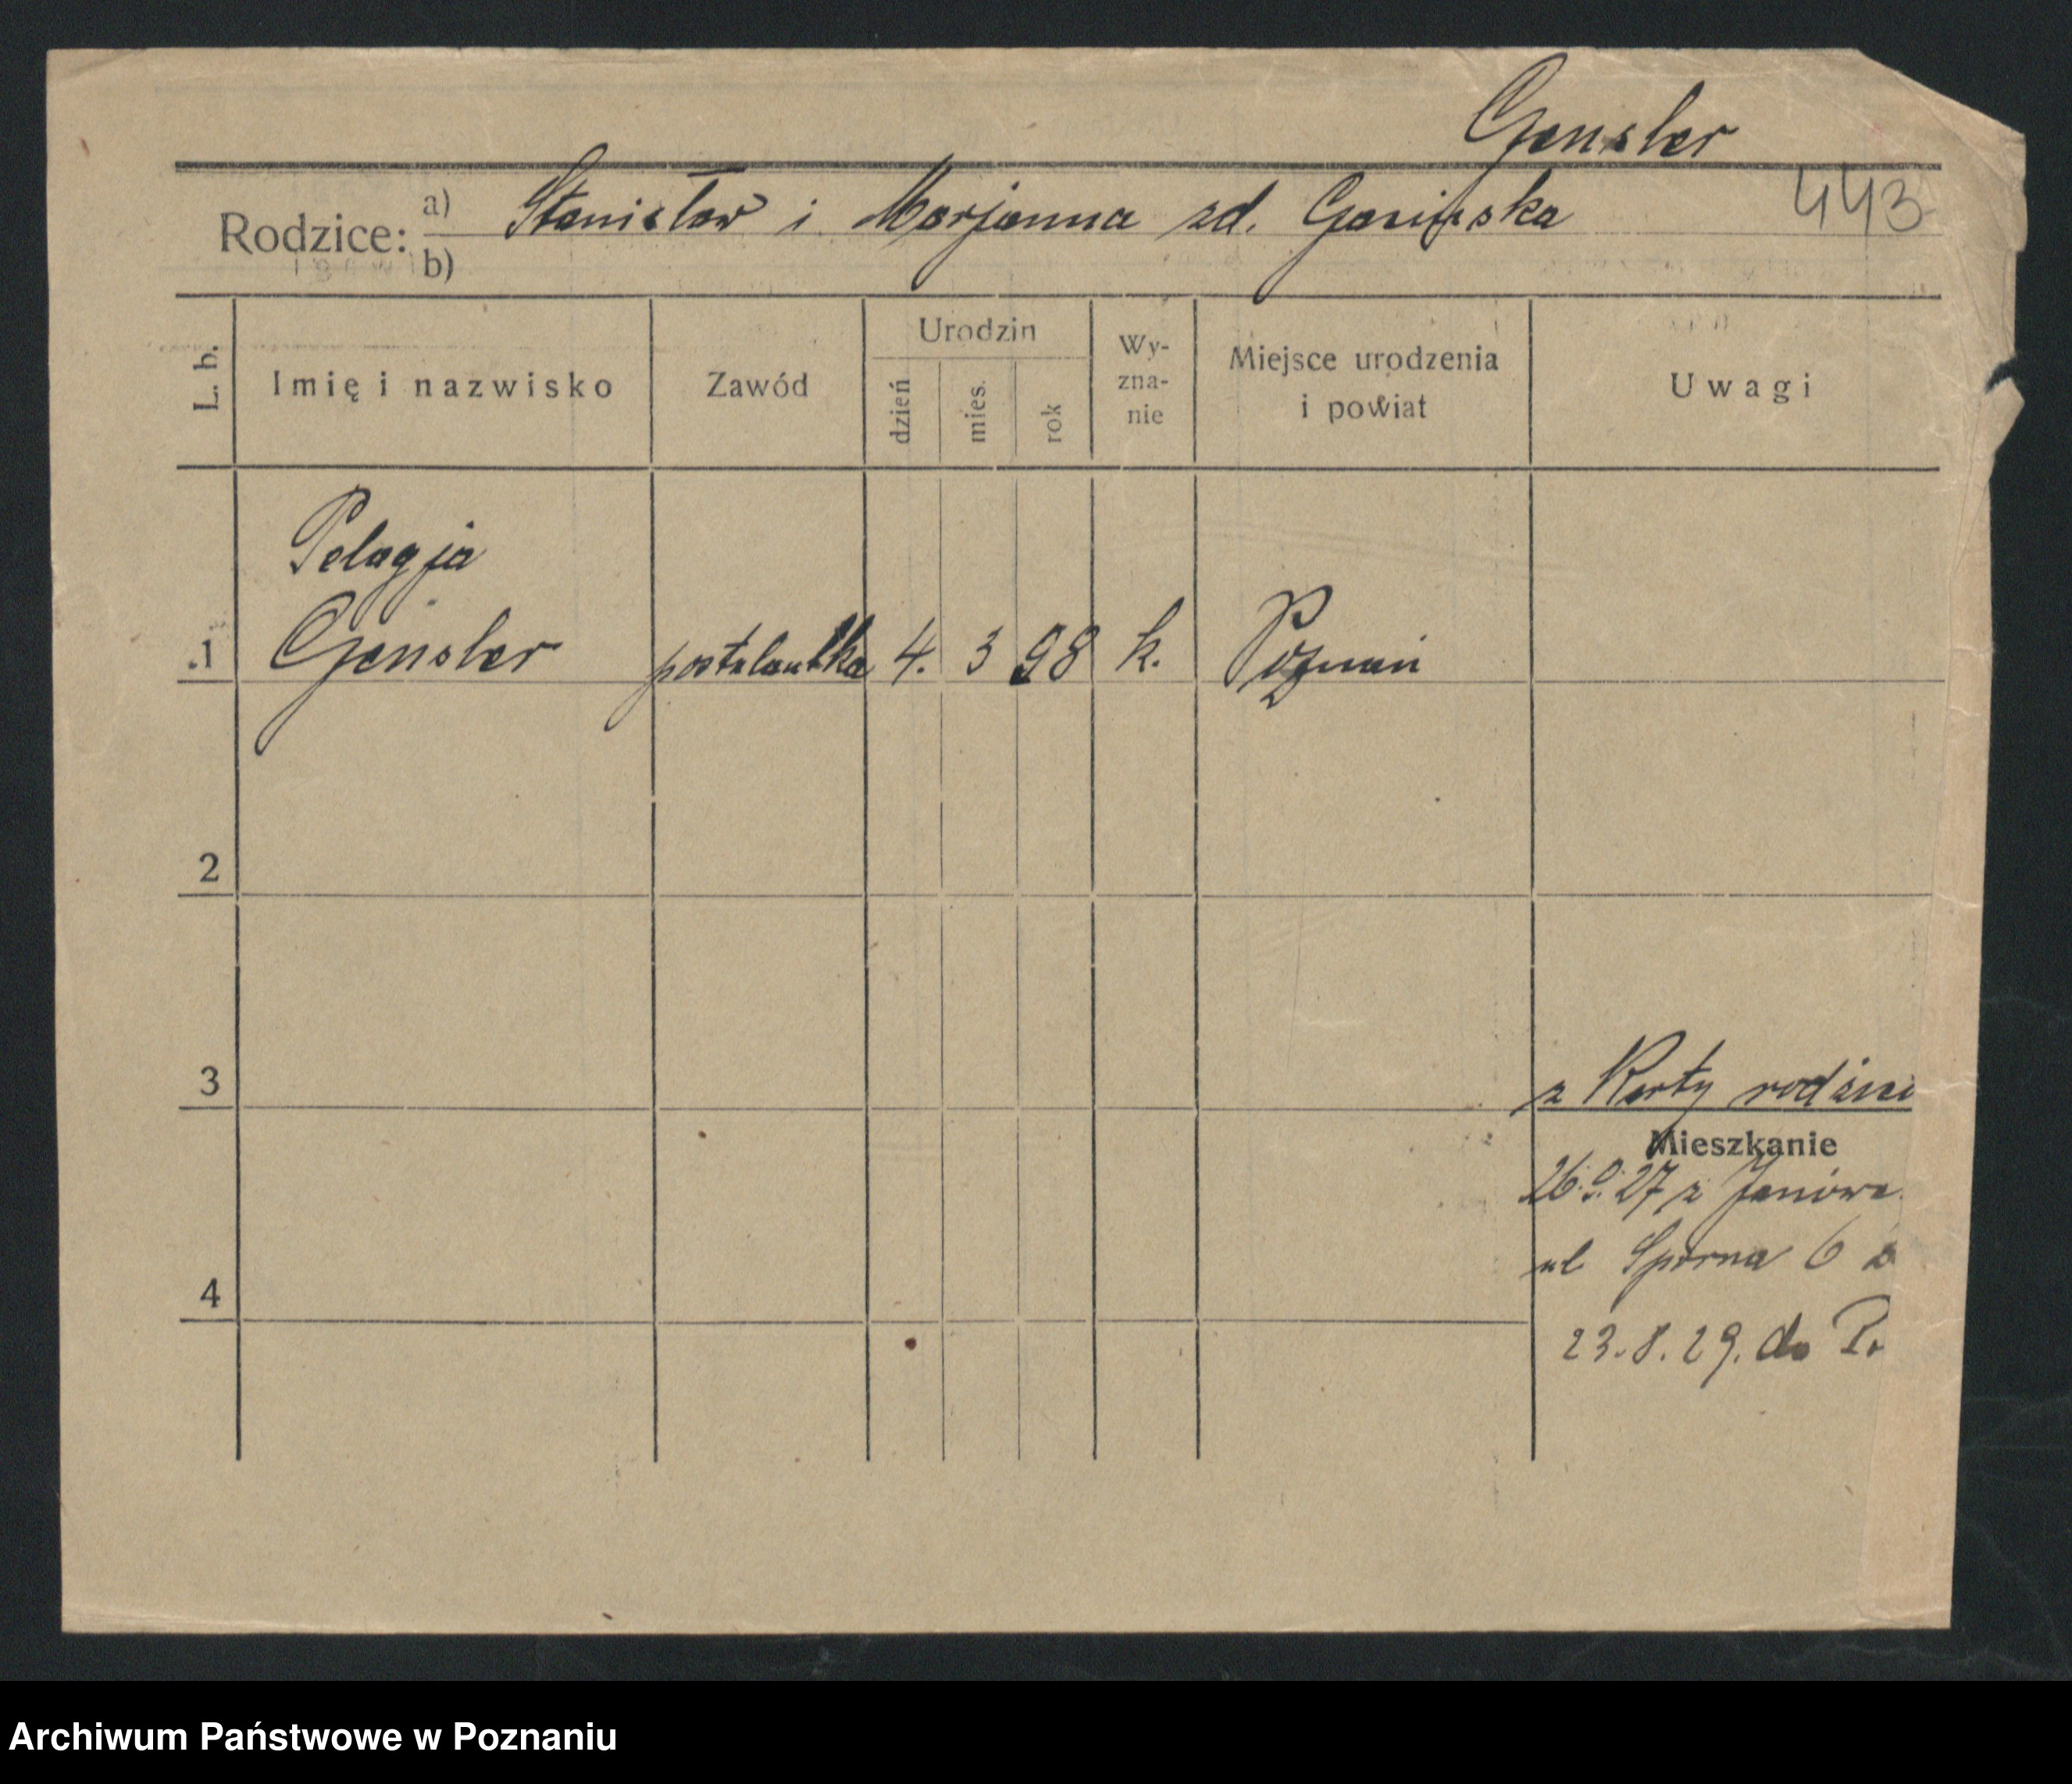 Gensler
443
Rodzice: a) Stanisław i Marjanna zd. Gasińska
b)
L. b. Imię i nazwisko Zawód Urodzin dzień mies. rok Wy-zna-nie Miejsce urodzenia i powiat Uwagi
Pelagja
1 Gensler postulantka 4. 3 98 k. Poznań
2
3
z Karty rodzici
Mieszkanie
26. 27 z Janówa
4
ul Sporna 6
23.8.29. do
Archiwum Państwowe w Poznaniu